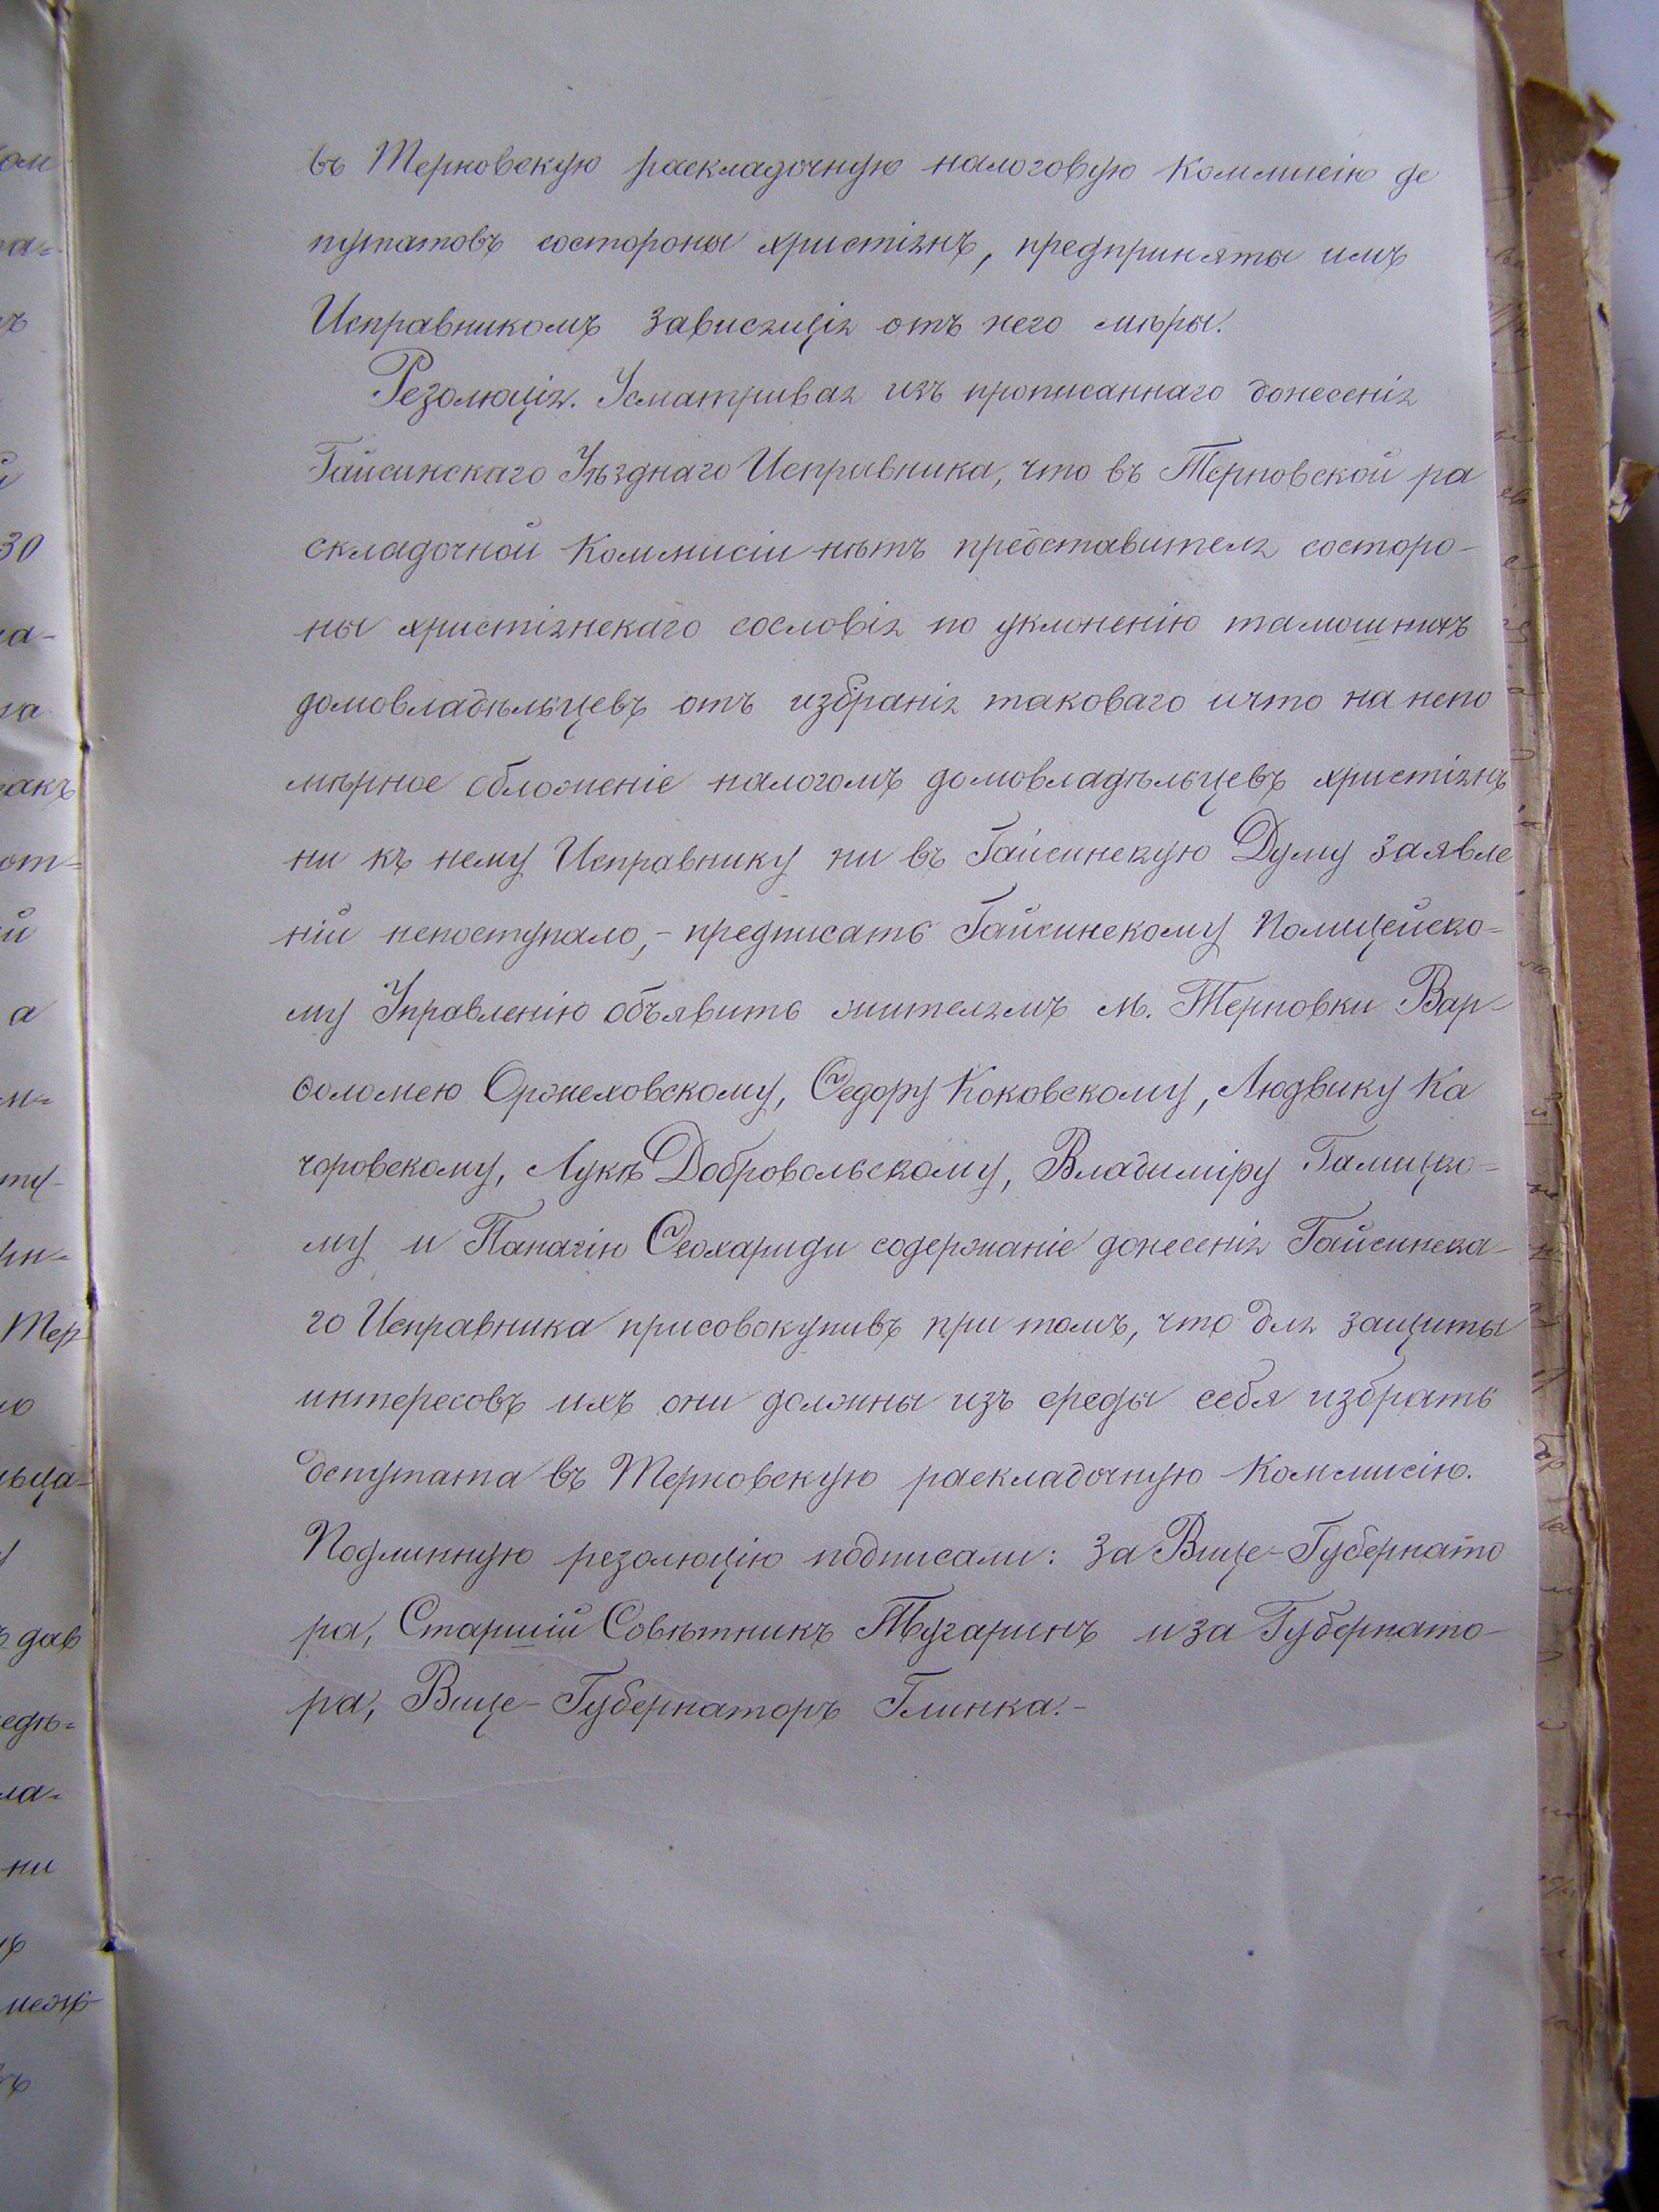 въ Терновскую раскладочную налоговую Коммисію де
путатовъ состороны христіянъ, предприняты имъ
Исправникомъ зависящія отъ него мѣры.
Резолюція. Усматривая изъ прописаннаго донесенія
Гайсинскаго Уѣзднаго Исправника, что въ Терновской ра
складочной Коммисіи нѣтъ представителя состоро-
ны христіянскаго сословія по уклоненію тамошнихъ
домовладѣльцевъ отъ избранія таковаго ичто на непо
мѣрное обложеніе налогомъ домовладѣльцевъ христіянъ
ни къ нему Исправнику ни въ Гайсинскую Думу заявле
ній непоступало,- предписать Гайсинскому Полицейско=
му Управленію объявить жителямъ м. Терновки Вар-
ѳоломею Оржеховскому, Ѳедору Коковскому, Людвику Ка
чоровскому, Лукѣ Добровольскому, Владиміру Галицко=
му и Панагію Ѳеохариди содержаніе донесенія Гайсинска-
го Исправника присовокупивъ при томъ, что для защиты
интересовъ ихъ они должны изъ среды себя избрать
депутата въ Терновскую раскладочную Коммисію.
Подлинную резолюцію подписали: за Вице-Губернато
ра, Старшій Совѣтникъ Тугаринъ иза Губернато-
ра, Вице-Губернаторъ Глинка.-